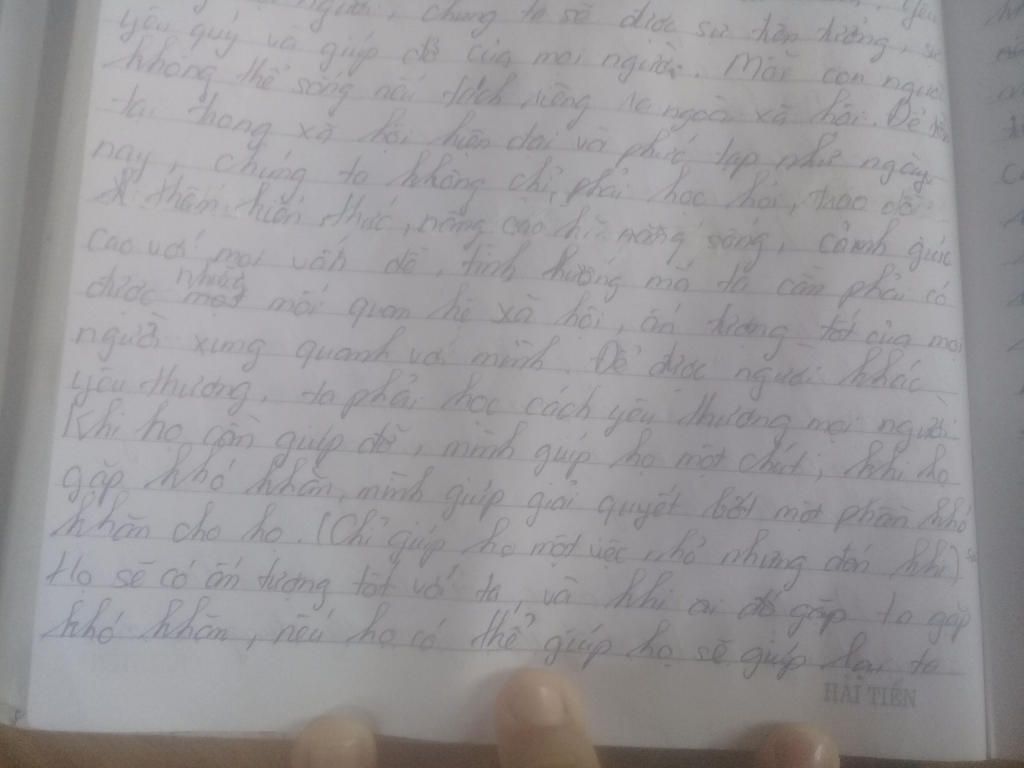 người, chúng ta sẽ được sự tin tưởng, sự
yêu quý và giúp đỡ của mọi người. Mỗi con người
không thể sống nếu tách riêng ra ngoài xã hội. Để tồn
tại trong xã hội hiện đại và phức tạp như ngày
nay, chúng ta không chỉ phải học hỏi, trao dồi
thêm kiến thức, nâng cao kĩ năng sống, cảnh giác
cao với mọi vấn đề, tình huống mà ta cần phải có
được những mối quan hệ xã hội, ấn tượng tốt của mọi
người xung quanh với mình. Để được người khác
yêu thương, ta phải học cách yêu thương mọi người.
Khi họ cần giúp đỡ, mình giúp họ một chút, khi họ
gặp khó khăn, mình giúp giải quyết bớt một phần khó
khăn cho họ. (Chỉ giúp họ một việc nhỏ nhưng đôi khi)
Họ sẽ có ấn tượng tốt với ta, và khi ai đó gặp ta gặp
khó khăn, nếu họ có thể giúp họ sẽ giúp lại ta
HẢI TIẾN